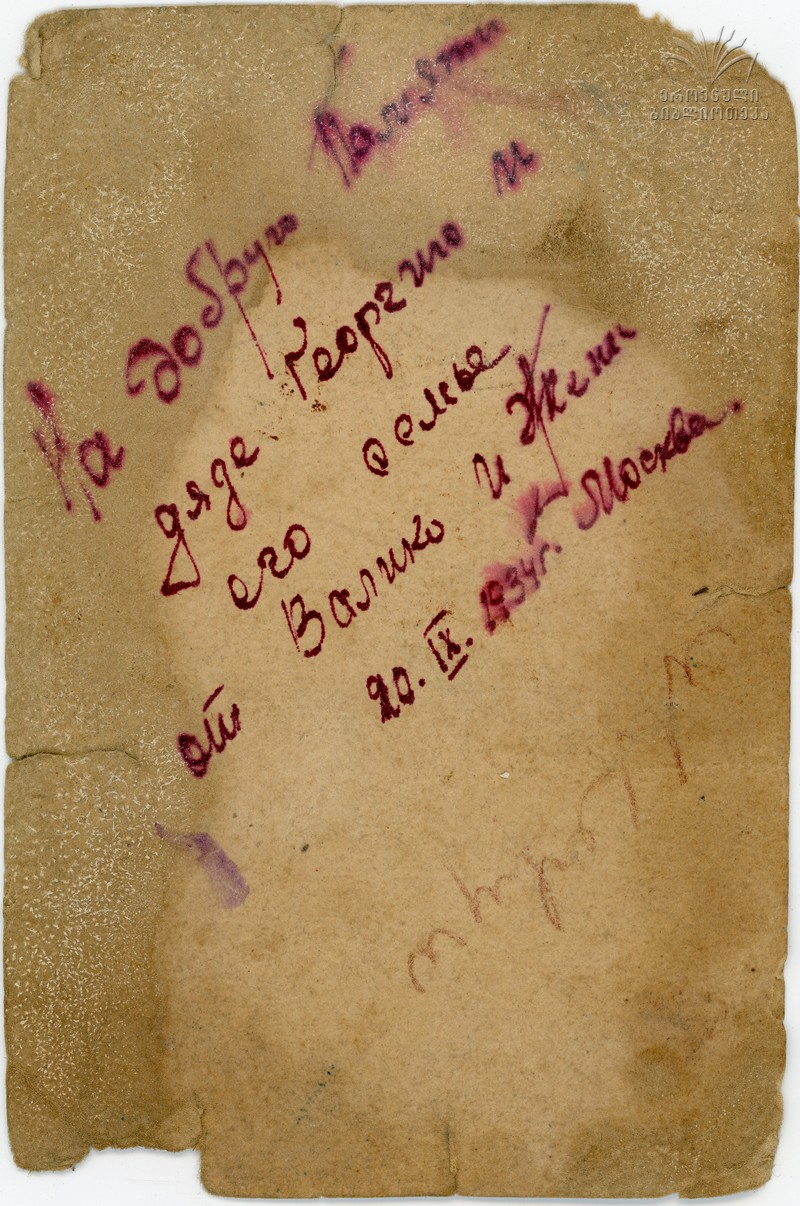 ეროვნული
ბიბლიოთეკა
На добрую память
дяде Георгию и
его семье
от Валико и Жени
20. IX. 1934г. Москва.